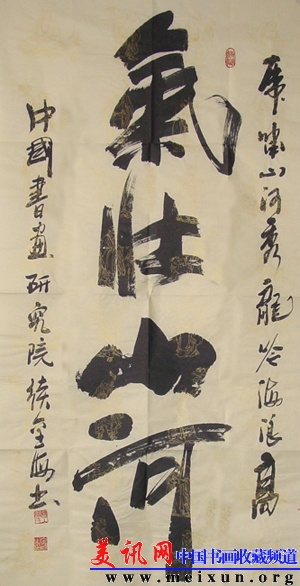 虎啸山河秀龙吟海浪高
氣壯山河
中國書畫研究院 金海书
美讯网 中国书画收藏频道
www.meixun.org